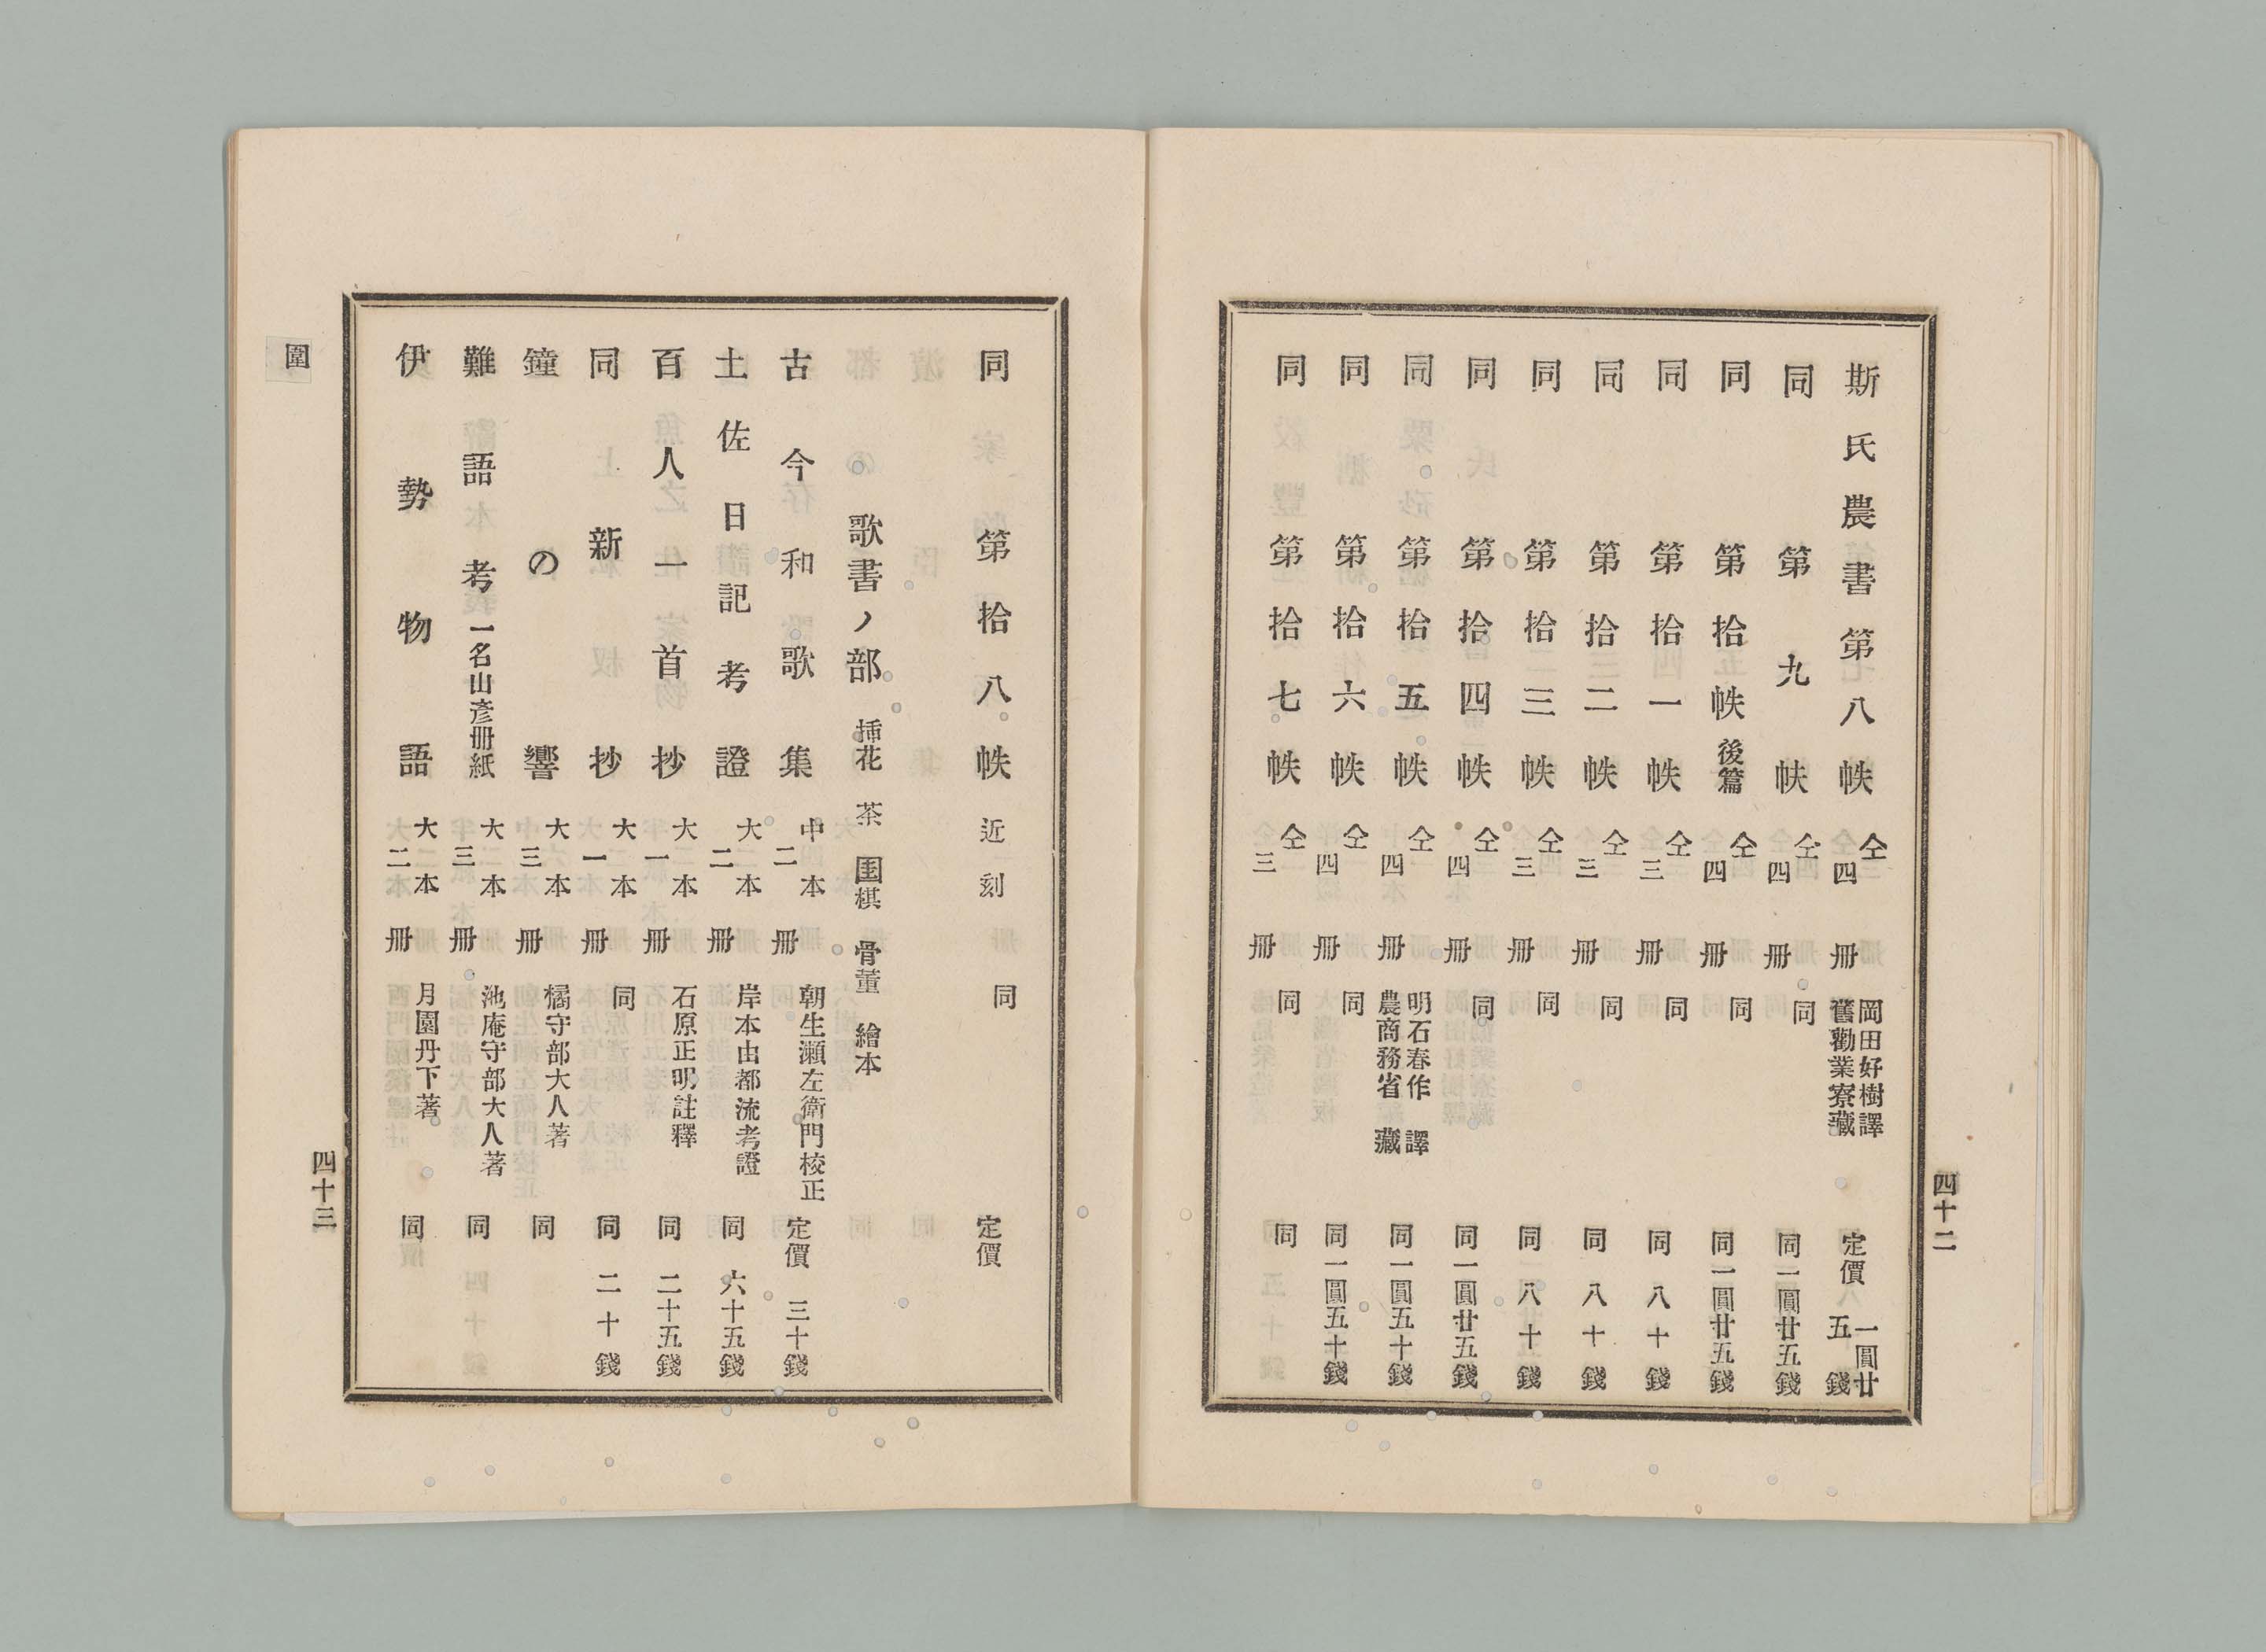 斯氏農書第八帙 仝四冊 岡田好樹譯 舊勸業寮藏 定價一圓廿五錢
同 第九帙 仝四冊 同 同一圓廿五錢
同 第拾帙後篇 仝四冊 同 同一圓廿五錢
同 第拾一帙 仝三冊 同 同八十錢
同 第拾二帙 仝三冊 同 同八十錢
同 第拾三帙 仝三冊 同 同八十錢
同 第拾四帙 仝四冊 同 同一圓廿五錢
同 第拾五帙 仝四冊 明石春作譯 農商務省藏 同一圓五十錢
同 第拾六帙 仝四冊 同 同一圓五十錢
同 第拾七帙 仝三冊 同 同
四十二
同 第拾八帙 近刻 同 定價
歌書ノ部 挿花 茶 囲棋 骨董 繪本
古今和歌集 中本二冊 朝生瀬左衛門校正 定價三十錢
土佐日記考證 大本二冊 岸本由都流考證 同六十五錢
百人一首抄 大本一冊 石原正明註釋 同二十五錢
同新抄 大本一冊 同 同二十錢
鐘の響 大本三冊 橘守部大人著 同
難語考一名山彦冊紙 大本三冊 池庵守部大人著 同
伊勢物語 大本二冊 月園丹下著 同
四十三
圍